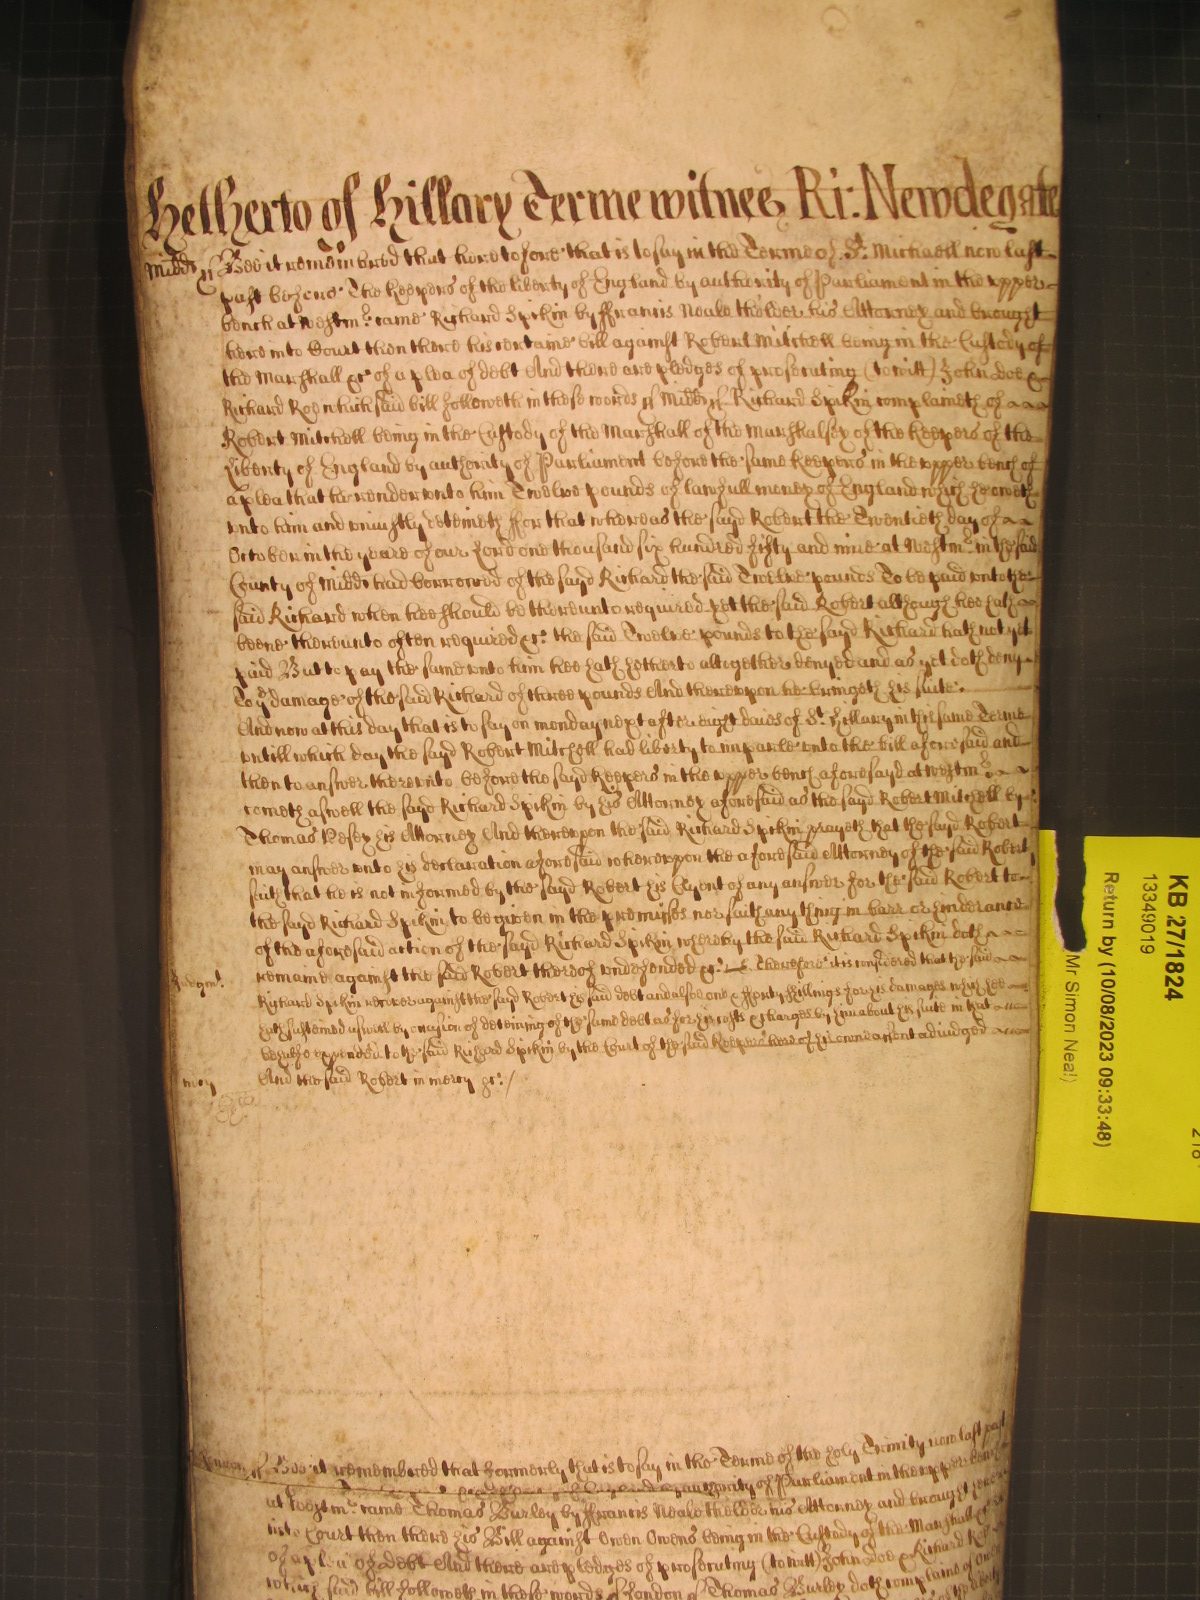 Hetherto of Hillary Terme witnes Ri: Newdegate
Midds ss Bee it remembred that heretofore that is to say in the Terme of St. Michaell now last
past before the Keepers of the liberty of England by authority of Parliament in the upper
bench at Westmr. came Richard Spikin by ffrancis Neale the elder his Attorney and brought
here into Court then there his certaine bill against Robert Mitchell being in the Custody of
the Marshall &c of a plea of debt And there are pledges of prosecuting (to witt) John Doe &
Richard Roe which said bill followeth in these words ss Midds ss Richard Spikin complaineth of
Robert Mitchell being in the Custody of the Marshall of the Marshalsey of the Keepers of the
Liberty of England by authority of Parliament before the same Keepers in the upper bench of
a plea that he render unto him Twelve pounds of lawfull money of England which he oweth
unto him and uniustly deteineth ffor that whereas the sayd Robert the Twentieth day of
October in the yeare of our Lord one thousand six hundred fifty and nine at Westmr. in the said
County of Midds had borrowed of the sayd Richard the said Twelve pounds To be paid unto the
said Richard when hee should be thereunto required yet the said Robert although hee hath
beene thereunto often required &c. the said Twelve pounds to the sayd Richard hath not yet
paid But to pay the same unto him hee hath hetherto altogether denyed and as yet doth deny
To ye damage of the said Richard of three pounds And thereupon he bringeth his suite.
And now at this day that is to say on monday next after eight daies of St. Hillary in this same Terme
untill which day the sayd Robert Mitchell had liberty to imparle unto the bill aforesaid and
then to answer thereunto before the sayd Keepers in the upper bench aforesayd at Westmr.
cometh aswell the sayd Richard Spikin by his Attorney aforesaid as the sayd Robert Mitchell by
Thomas his Attorney And thereupon the said Richard Spikin prayeth that the sayd Robert
may answer unto his declaration aforesaid whereupon the aforesaid Attorney of the said Robert
saith that he is not informed by the sayd Robert his Clyent of any answer for the said Robert to
the sayd Richard Spikin to be given in the premisses nor saith any thing in barr or hinderance
of the aforesaid action of the sayd Richard Spikin whereby the said Richard Spikin doth
remaine against the said Robert thereof undefended &c. Therefore it is considered that the said
Judgmt.
Richard Spikin recover against the sayd Robert his said debt and alsoe one & fforty shillings for his damages which hee
hath susteined aswell by occasion of deteining of the same debt as for his costs & charges by him about his suite in that
behalfe expended to the said Richard Spikin by the Court of the said Keepers here of his owne assent adiudged
And the said Robert in mercy &c./
mcy
London ss Bee it remembred that formerly that is to say in the Terme of the holy Trinity now last past
authority of Parliament in the upper bench
at Westmr. came Thomas Burley by ffrancis Neale the elder his Attorney and brought here
into Court then there his Bill against Owen Owens being in the Custody of the Marshall &c
of a plea of debt And there are pledges of prosecuting (to witt) John Doe & Richard Roe
which said bill followeth in these words ss London ss Thomas Burley doth complaine of Owen
KB 27/1824
13349019
Return by (10/08/2023 09:33:48)
Mr Simon Neal)